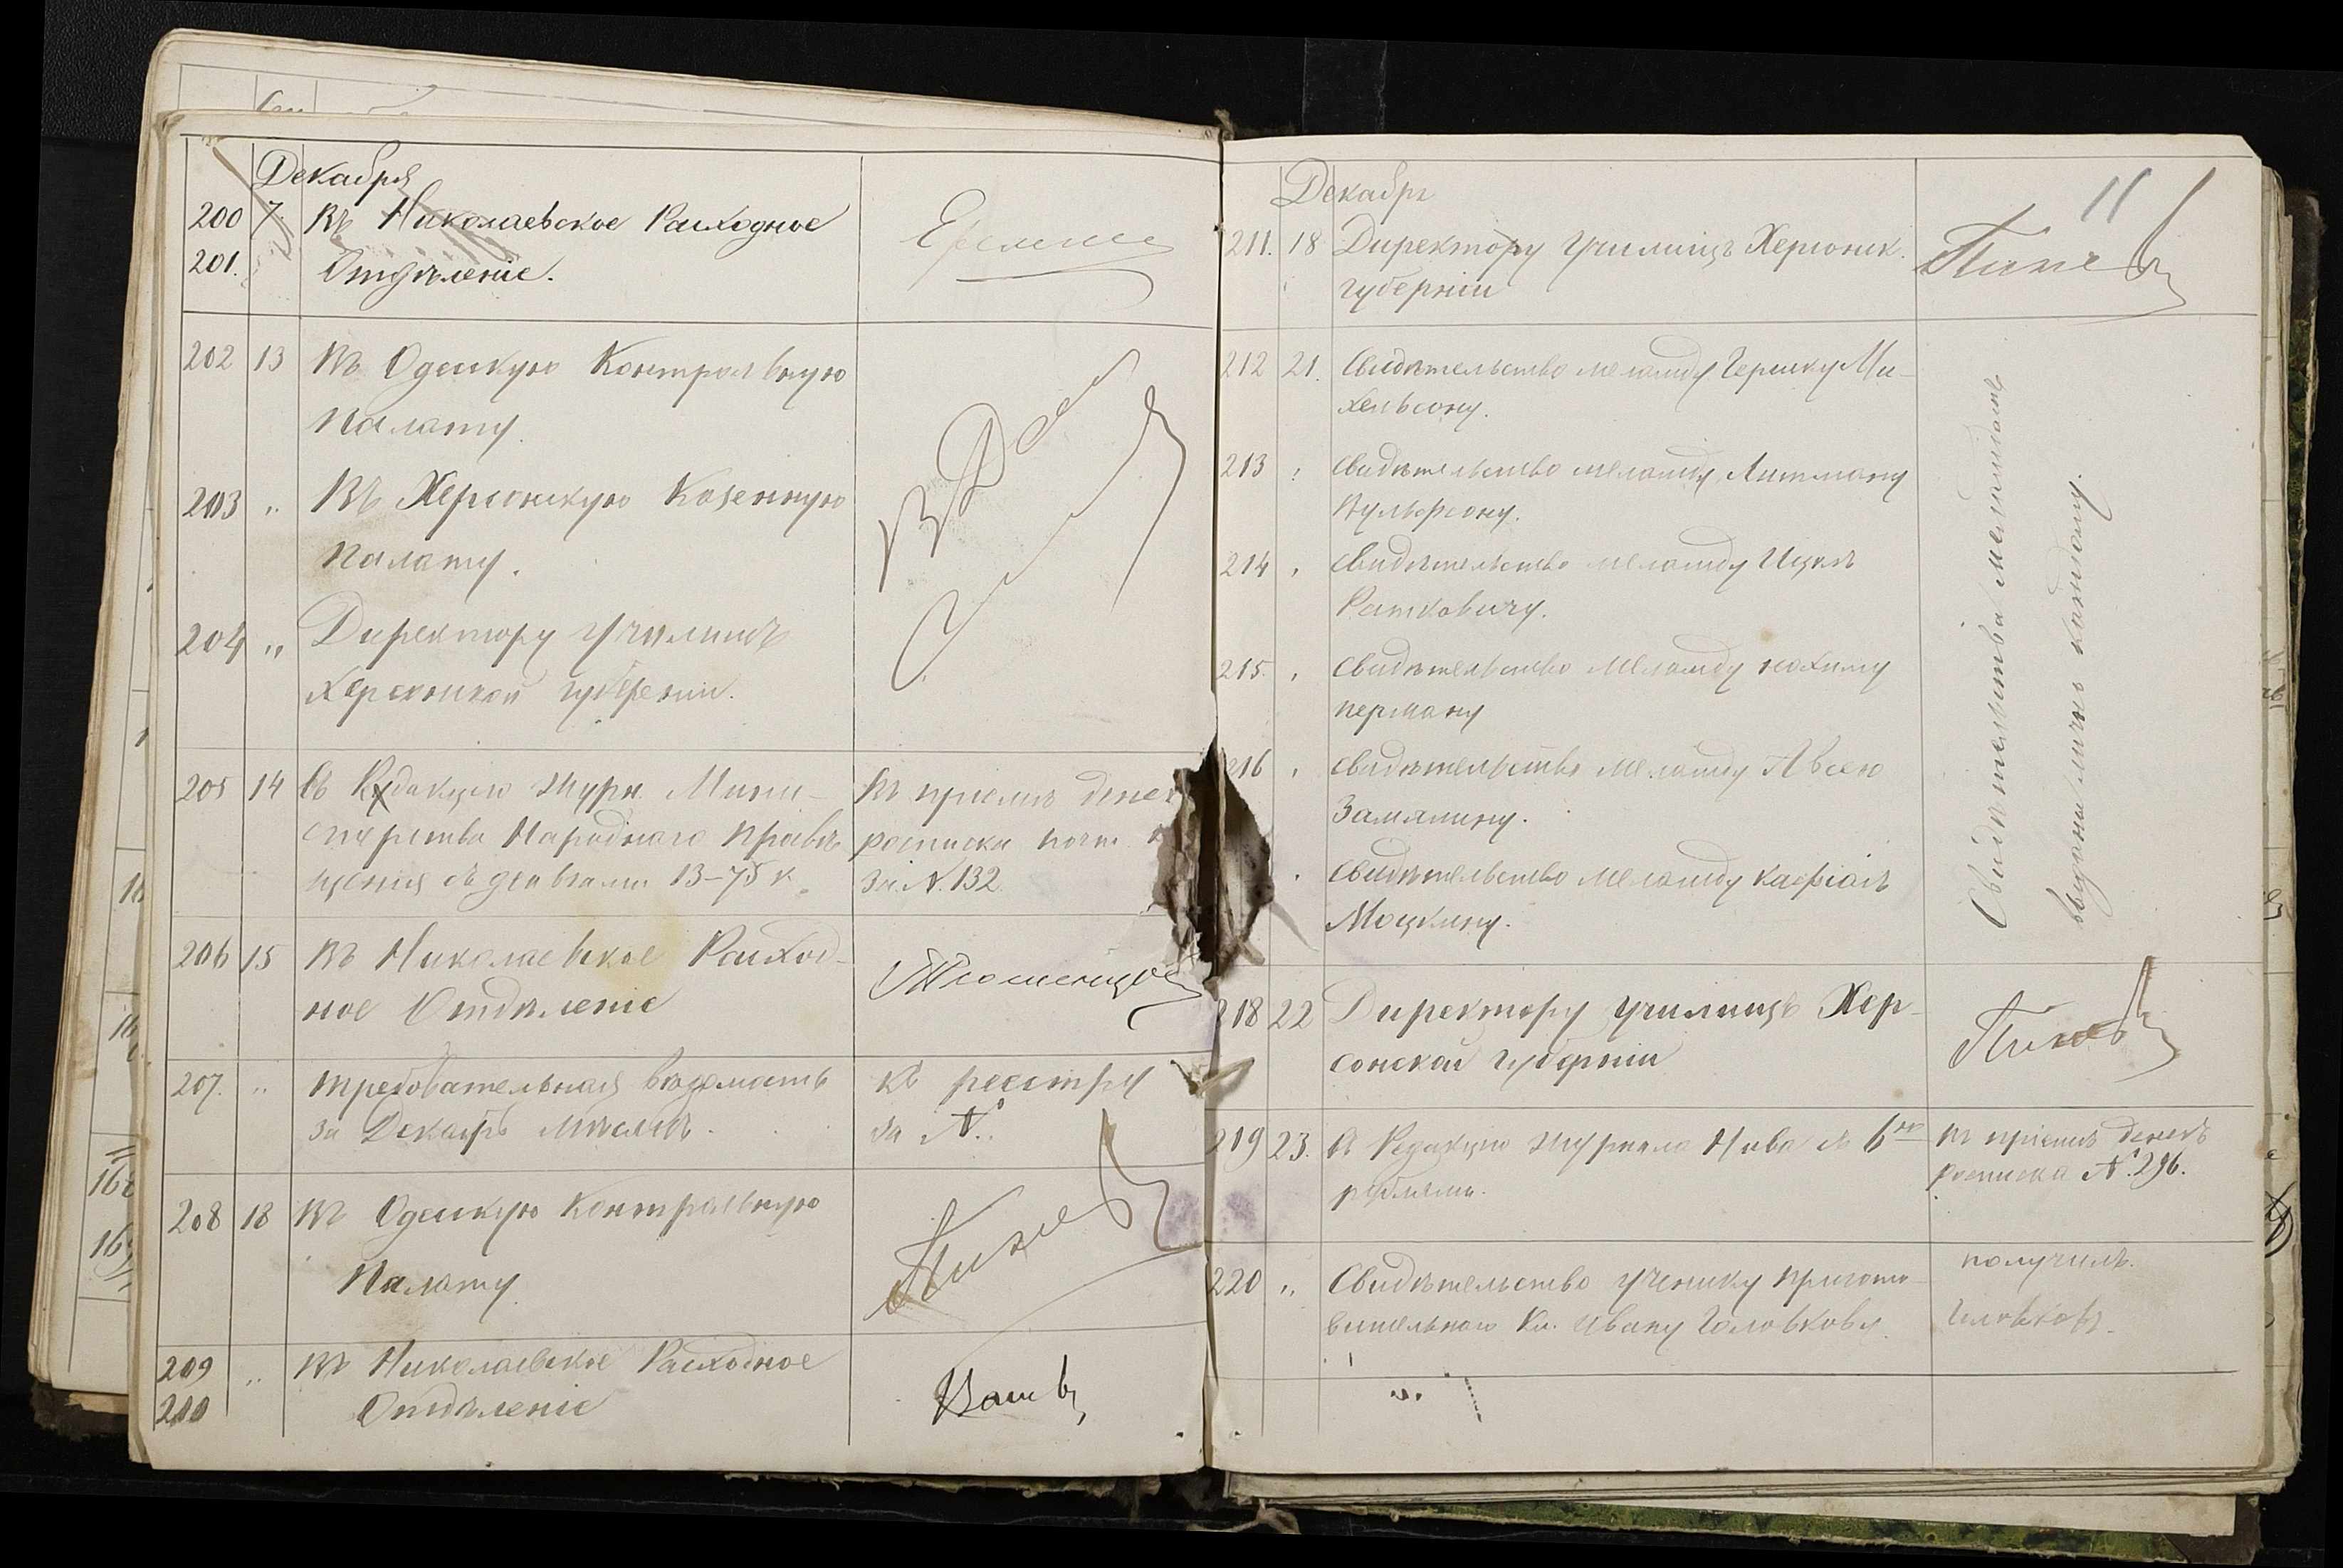 Декабря
200 7. Въ Николаевское Расходное
201. Отдѣленіе.
202 13 Въ Одесскую Контрольную
Палату.
203 „ Въ Херсонскую Казенную
Палату.
204 „ Директору Училищъ
Херсонской губерніи.
205 14 Въ Редакцію Журн. Мини-
стерства Народнаго Просвѣ
щенія съ деньгами 13-75 к.
Въ пріемѣ денег
росписка почт. к
За N. 132
206 15 Въ Николаевское Расход-
ное Отдѣленіе
207. „ Требовательная вѣдомость
за Декабрь мѣсяцъ.
Къ реестру
за N.
208 18 Въ Одесскую Контрольную
Палату
209 „ Въ Николаевское Расходное
210 Отдѣленіе
11
Декабрь
211. 18 Директору Училищъ Херсонск.
губерніи
212 21. Свидѣтельство меламду Гершку Ми-
хельсону.
213 „ Свидѣтельство меламду Литману
Вульфсону.
214 „ Свидѣтельство меламду Ицкѣ
Ратковичу.
215. „ Свидѣтельство меламду Нохиму
Перману
216 „ Свидѣтельство меламду Авсею
Замянину.
„ Свидѣтельство меламду
Моцкину.
Свидѣтельства меламдамъ
выданы лично каждому.
218 22 Директору училищъ Хер-
сонской губерніи
219 23. В Редакцію журнала Нива съ 6ю
рублями.
Въ пріемѣ денегъ
росписка N. 296.
220 „ Свидѣтельство ученику пригото-
вительнаго Кл. Ивану Головкову.
получилъ.
Головковъ.